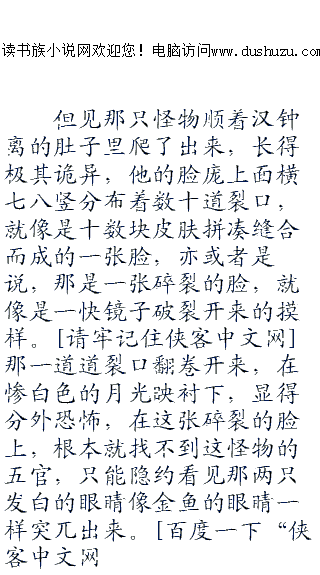 读书族小说网欢迎您！电脑访问www.dushuzu.com
但见那只怪物顺着汉钟
离的肚子里爬了出来，长得
极其诡异，他的脸庞上面横
七八竖分布着数十道裂口，
就像是十数块皮肤拼凑缝合
而成的一张脸，亦或者是
说，那是一张碎裂的脸，就
像是一快镜子破裂开来的摸
样。[请牢记住侠客中文网]
那一道道裂口翻卷开来，在
惨白色的月光映衬下，显得
分外恐怖，在这张碎裂的脸
上，根本就找不到这怪物的
五官，只能隐约看见那两只
发白的眼睛像金鱼的眼睛一
样突兀出来。[百度一下“侠
客中文网